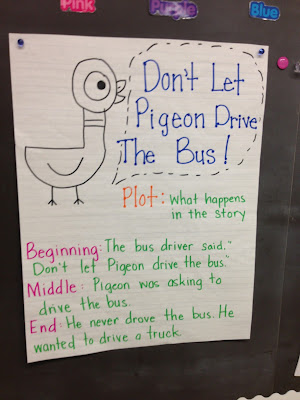 Pink
Purple
Blue
Don't Let
Pigeon Drive
The Bus!
Plot: What happens
in the story
Beginning: The bus driver said,"
Don't let Pigeon drive the bus."
Middle: Pigeon was asking to
drive the bus.
End: He never drove the bus. He
wanted to drive a truck.